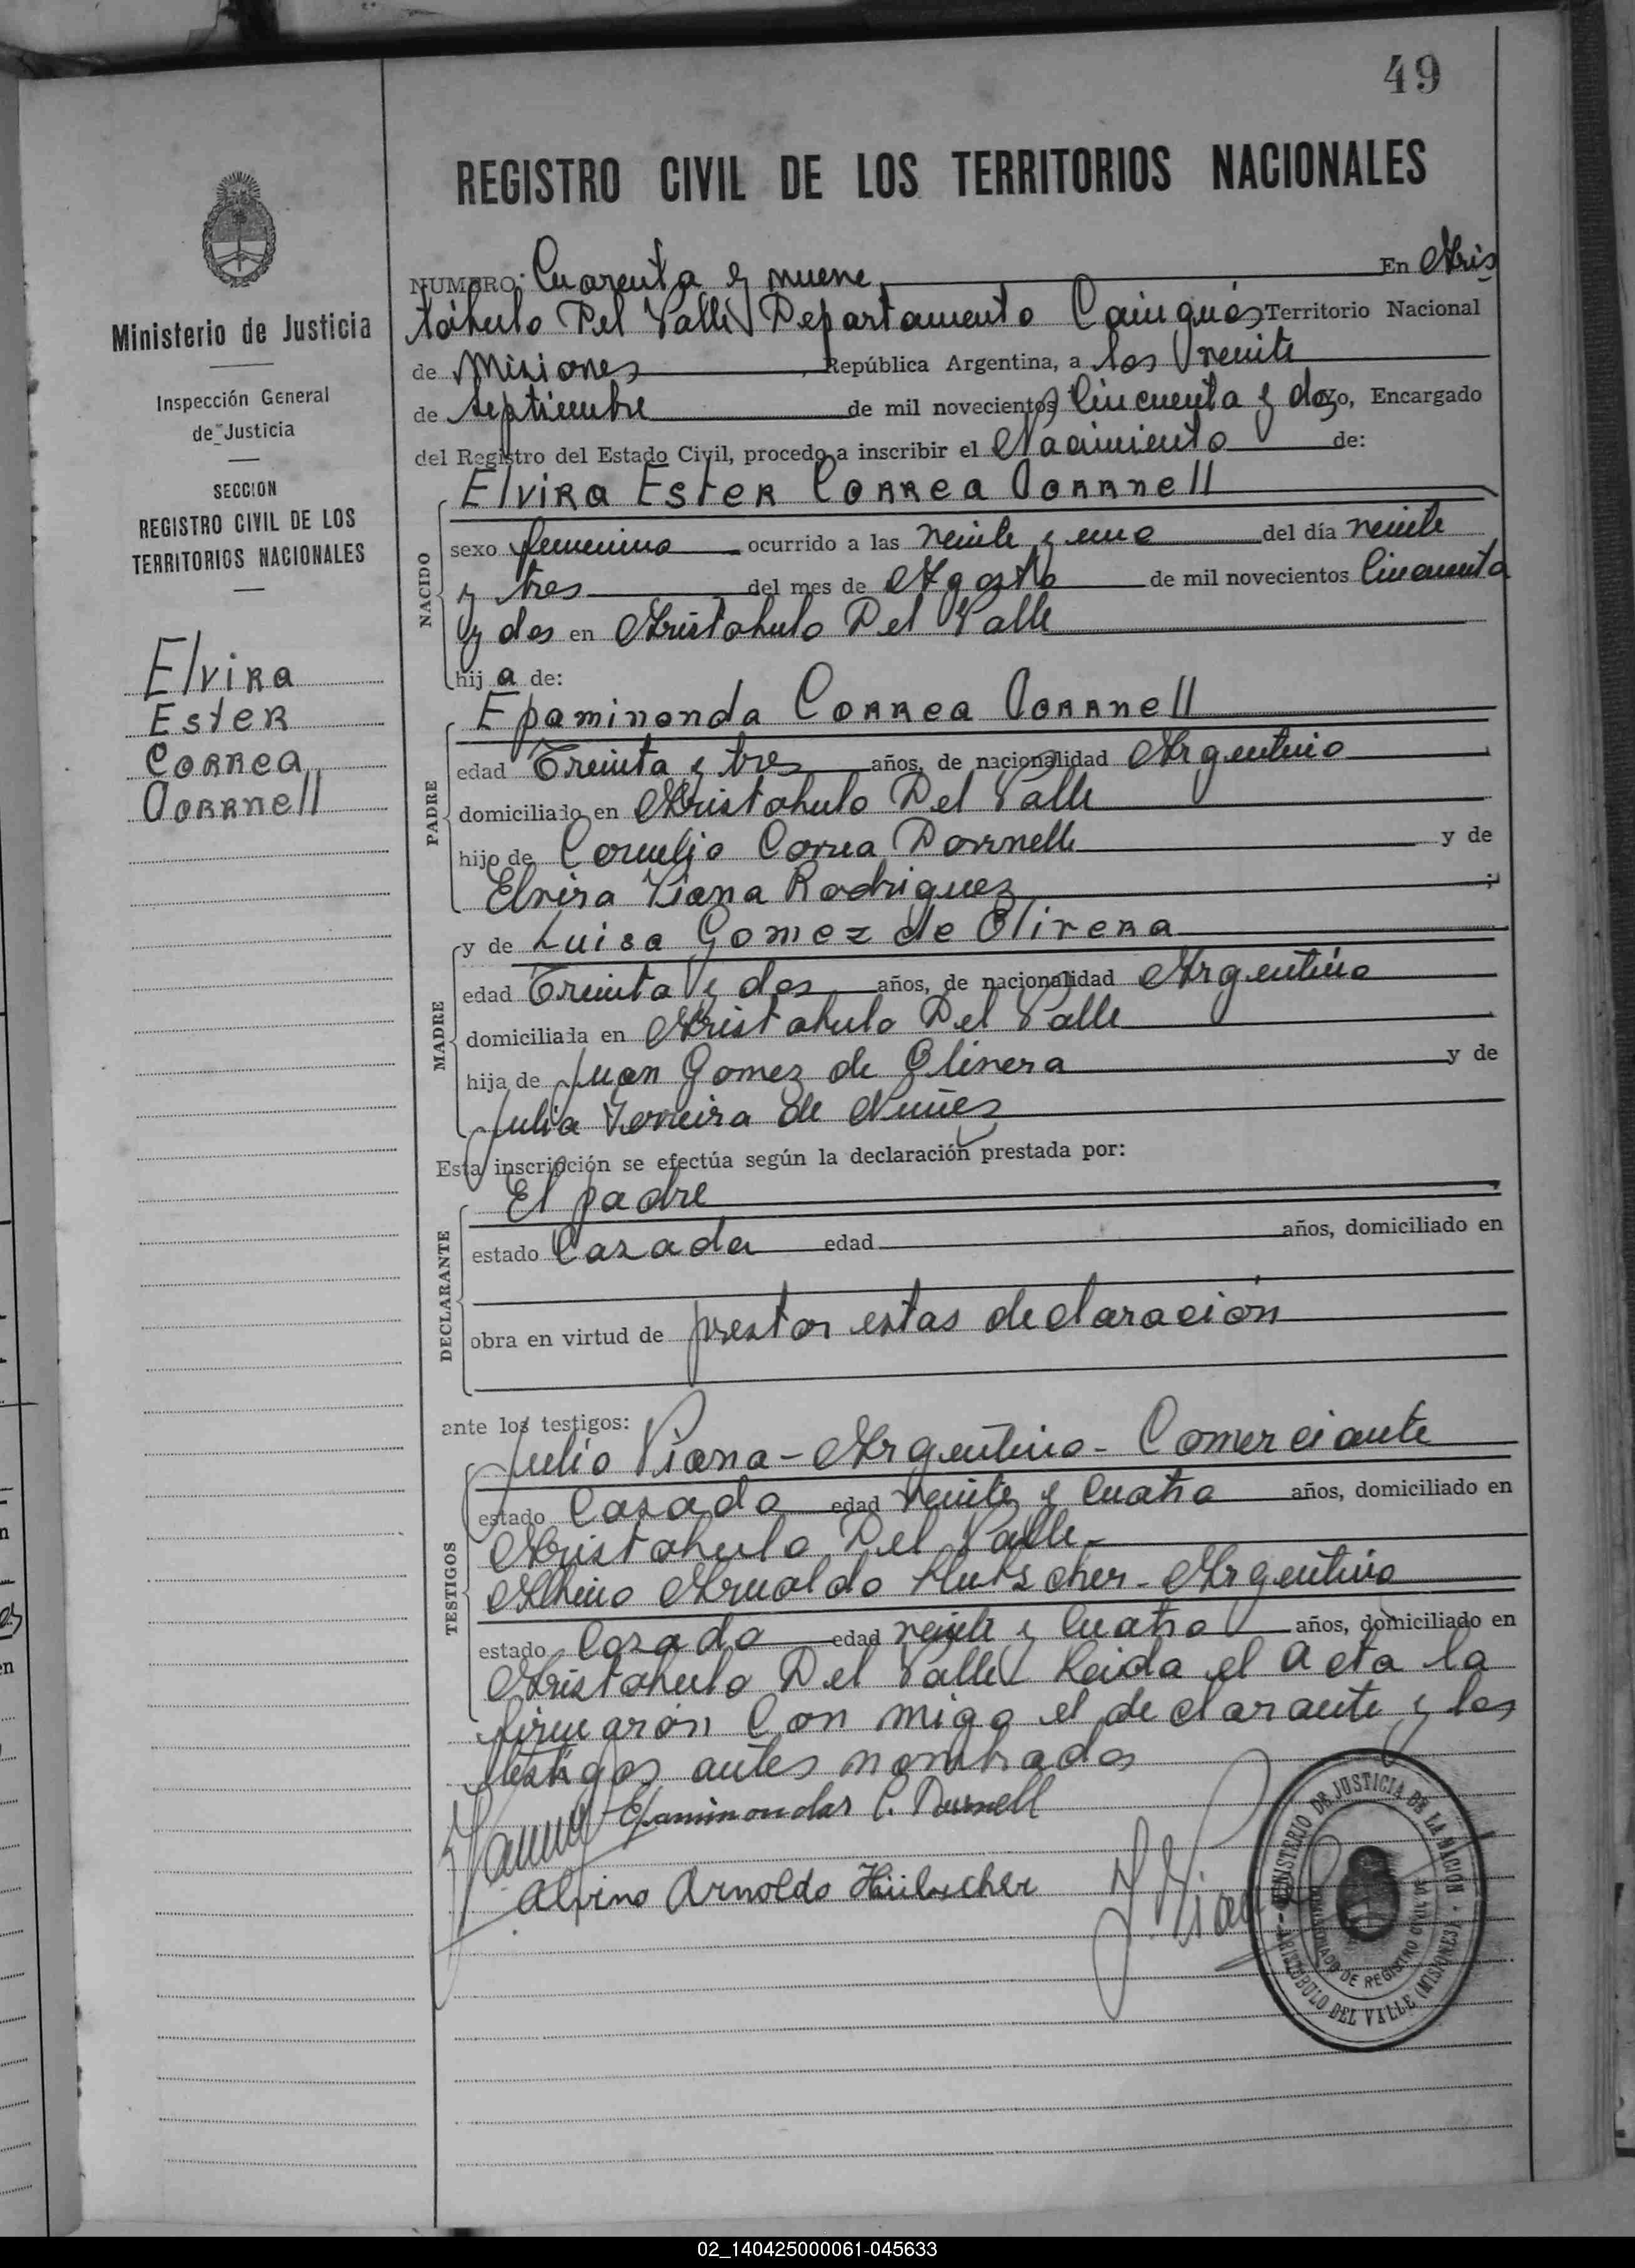 49
REGISTRO CIVIL DE LOS TERRITORIOS NACIONALES
Ministerio de Justicia
Inspección General
de Justicia
SECCION
REGISTRO CIVIL DE LOS
TERRITORIOS NACIONALES
Elvira
Ester
Correa
Dorrnell
NUMERO: Cuarenta y nueve En Aris
tóbulo Del Valle Departamento Cainguás Territorio Nacional
de Misiones, República Argentina, a los veinte
de septiembre de mil novecientos Cincuenta y dos yo, Encargado
del Registro del Estado Civil, procedo a inscribir el Nacimiento de:
NACIDO
Elvira Ester Correa Dorrnell
sexo femenino ocurrido a las veinte y una del día veinte
y tres del mes de Agosto de mil novecientos Cincuenta
y dos en Aristobulo Del Valle
hij a de:
PADRE
Epaminonda Correa Dorrnell
edad Treinta y tres años, de nacionalidad Argentino
domiciliado en Aristobulo Del Valle
hijo de Cornelio Correa Dorrnell y de
Elvira Viana Rodriguez;
MADRE
y de Luisa Gomez de Olivera
edad Treinta y dos años, de nacionalidad Argentina
domiciliada en Aristobulo Del Valle
hija de Juan Gomez de Olivera y de
Julia Ferreira de Nuñes
Esta inscripción se efectúa según la declaración prestada por:
DECLARANTE
El padre
estado Casada edad años, domiciliado en
obra en virtud de prestar estas declaración
ante los testigos:
TESTIGOS
Julio Viana - Argentino - Comerciante
estado Casado edad veinte y Cuatro años, domiciliado en
Aristobulo Del Valle -
Albino Arnoldo - Argentino
estado Casado edad veinte y Cuatro años, domiciliado en
Aristobulo Del Valle Leida el Acta la
firmarón Con migo el declarante y los
testigos antes nombrados
Epaminondas C. Durnell
Alvino Arnoldo
MINISTERIO DE JUSTICIA DE LA NACION
ARISTOBULO DEL VALLE (MISIONES)
DE REGISTRO CIVIL
02_140425000061-045633